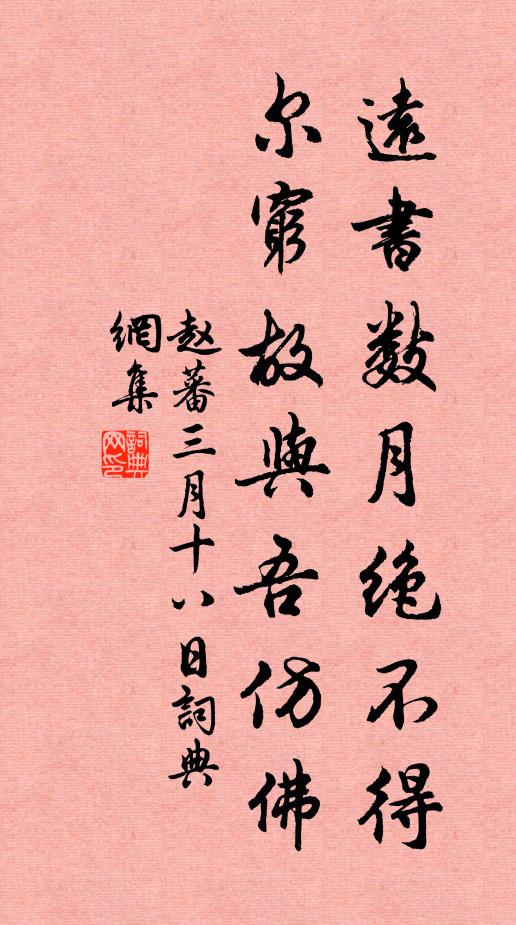 遠書数月絶不得
尔窮故與吾仿佛
赵蕃三月十八日詞典
網集
詞典
网印